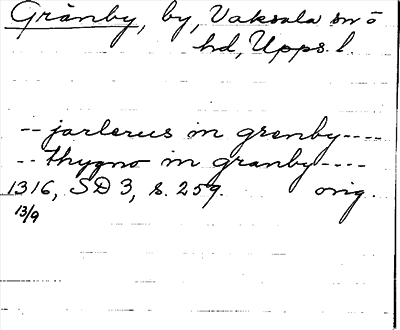 Gränby, by, Vaksala sn o
hd, Upps. l.
-- jarlerus in grenby ----
-- thygno in granby ----
1316, SD 3, s. 259. orig.
13/9